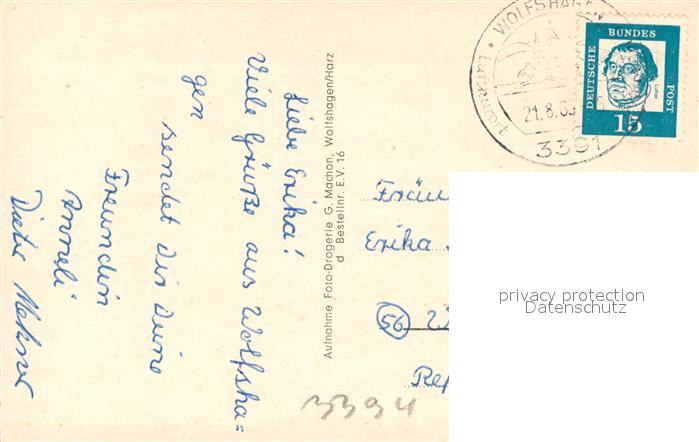 Liebe Erika!
Viele Grüße aus Wolfsha=
gen
sendet dir deine
Freundin
Anneli
Dieter
Aufnahme Foto-Drogerie G. Machon, Wolfshagen/Harz
d Bestellnr. E.V. 16
WOLFSHAGEN
21.8.63
3391
DEUTSCHE BUNDES POST
15
Fräu
Erika
(56)
3394
privacy protection
Datenschutz